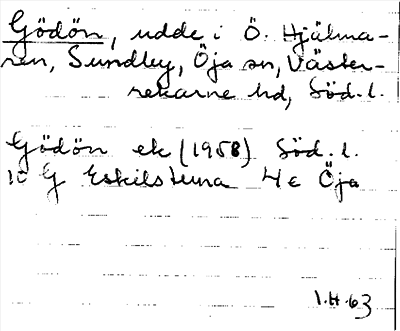 Gödön, udde i Ö. Hjälma-
ren, Sundby, Öja sn, Väster-
rekarne hd, Söd. l.
Gödön ek (1958) Söd. l.
10 G Eskilstuna 4 e Öja
1.H.63